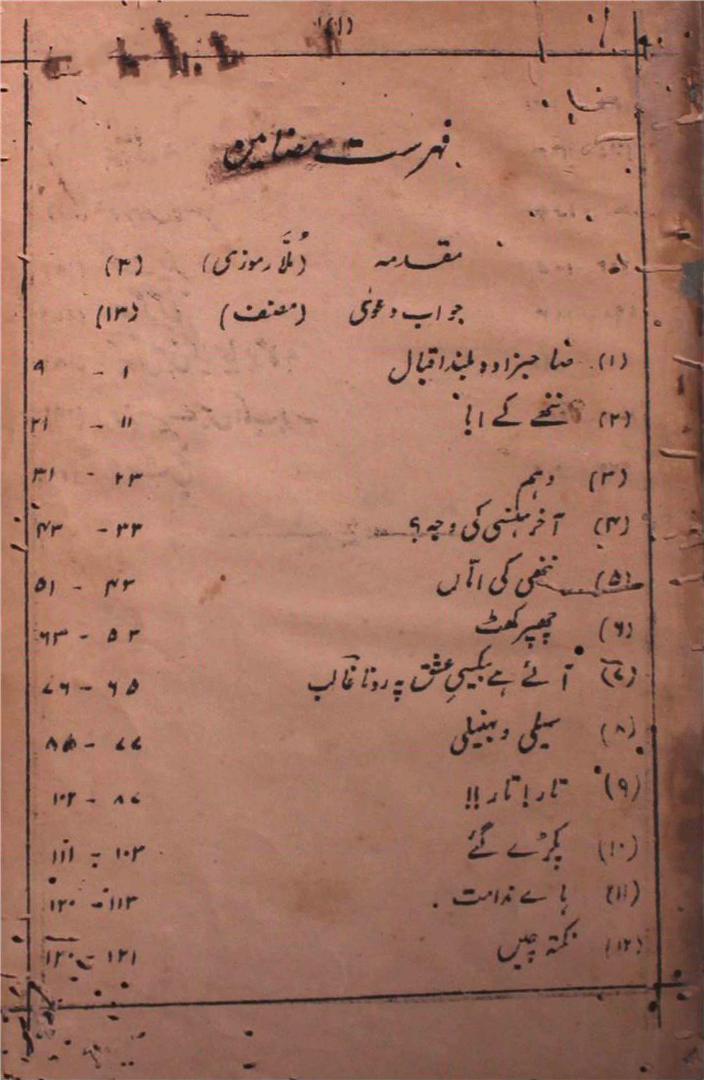 فہرست مضامین
مقدمہ (مُلّا رموزی) (۳)
جواب دعویٰ (مصنف) (۱۳)
(۱) صاحبزادہ بلند اقبال ۱ - ۹
(۲) ننھے کے ابا! ۱۱ - ۲۱
(۳) وہم ۲۳ - ۳۱
(۴) آخر ہنسی کی وجہ؟ ۳۳ - ۴۳
(۵) ننھی کی اماں ۴۳ - ۵۱
(۶) چھپر کھٹ ۵۳ - ۶۳
(۷) آئے ہے بیکسیِ عشق پہ رونا غالب ۶۵ - ۷۶
(۸) سہیلی و بہنیلی ۷۷ - ۸۵
(۹) تار! تار!! ۸۷ - ۱۰۲
(۱۰) پکڑے گئے ۱۰۳ - ۱۱۱
(۱۱) ہائے ندامت . ۱۱۳ - ۱۲۰
(۱۲) نکتہ چیں ۱۲۱ - ۱۳۰